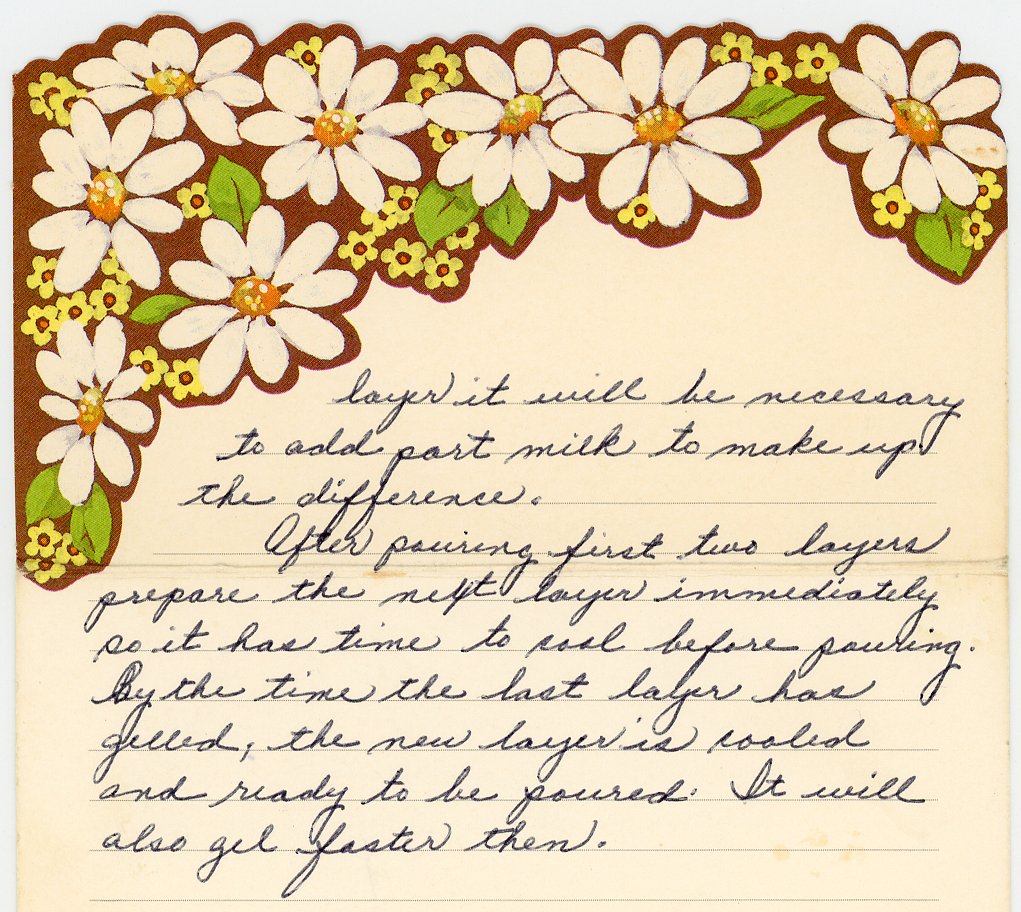 layer it will be necessary
to add part milk to make up
the difference.
After pouring first two layers
prepare the next layer immediately
so it has time to cool before pouring.
By the time the last layer has
gelled, the new layer is cooled
and ready to be poured. It will
also gel faster then.